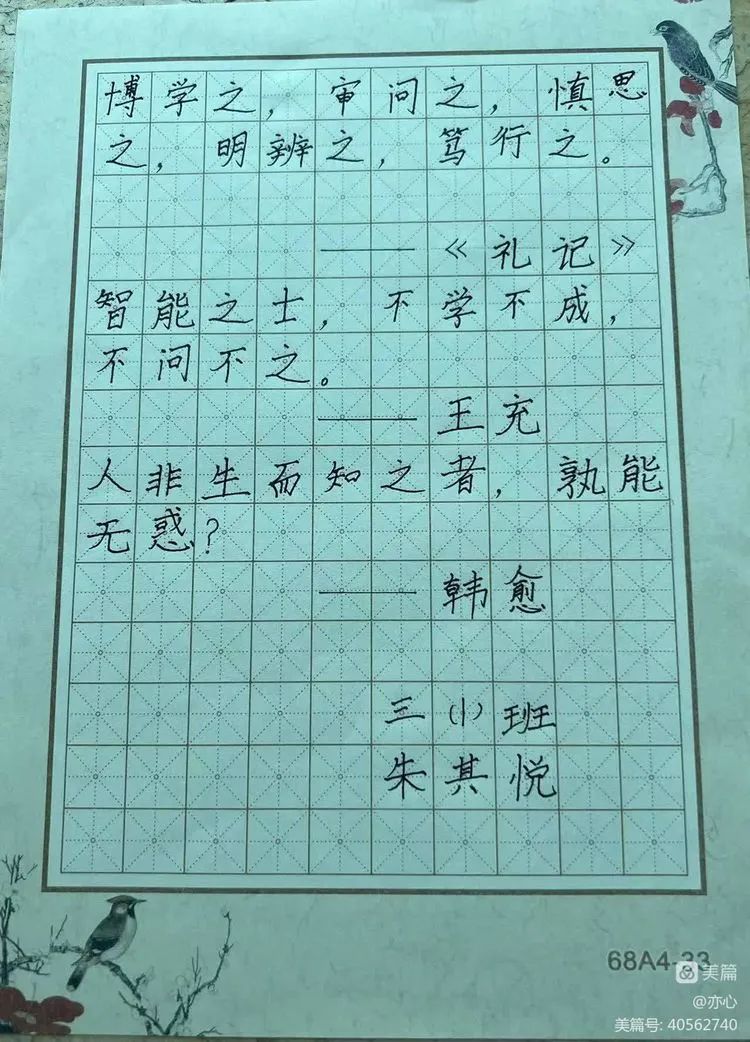 博学之，审问之，慎思
之，明辨之，笃行之。
——《礼记》
智能之士，不学不成，
不问不之。
——王充
人非生而知之者，孰能
无惑？
——韩愈
三(1)班
朱其悦
68A4-33
美篇
@亦心
美篇号: 40562740